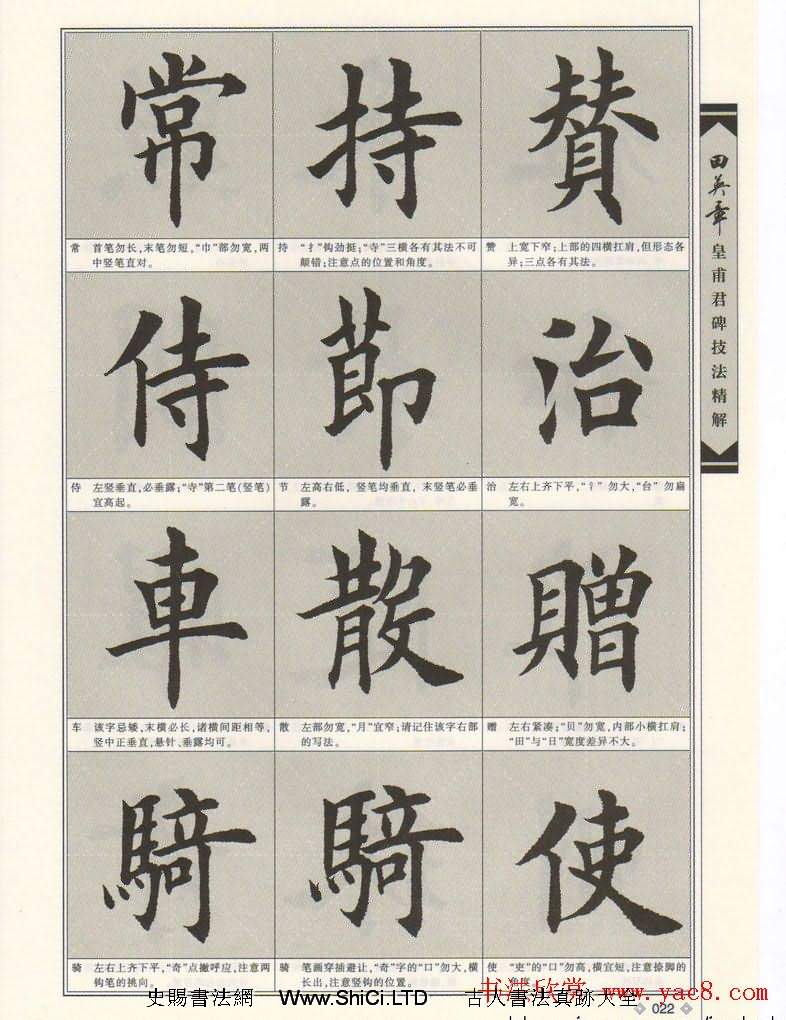 常 持 賛
常 首笔勿长，末笔勿短，“巾”部勿宽，两
中竖笔直对。
持 “扌”钩劲挺；“寺”三横各有其法不可
颠错；注意点的位置和角度。
赞 上宽下窄；上部的四横扛肩，但形态各
异；三点各有其法。
侍 節 治
侍 左竖垂直，必垂露；“寺”第二笔（竖笔）
宜高起。
节 左高右低，竖笔均垂直，末竖笔必垂
露。
治 左右上齐下平，“氵”勿大，“台”勿扁
宽。
車 散 贈
车 该字忌矮，末横必长，诸横间距相等，
竖中正垂直，悬针、垂露均可。
散 左部勿宽，“月”宜窄；请记住该字右部
的写法。
赠 左右紧凑；“贝”勿宽，内部小横扛肩；
“田”与“日”宽度差异不大。
騎 騎 使
骑 左右上齐下平，“奇”点撇呼应，注意两
钩笔的挑向。
骑 笔画穿插避让，“奇”字的“口”勿大，横
长出，注意竖钩的位置。
使 “吏”的“口”勿高，横宜短，注意捺脚的
角度。
田英章
皇甫君碑技法精解
史賜書法網 Www.ShiCi.LTD 古人書法真跡大全
书法欣赏 www.yac8.com
022